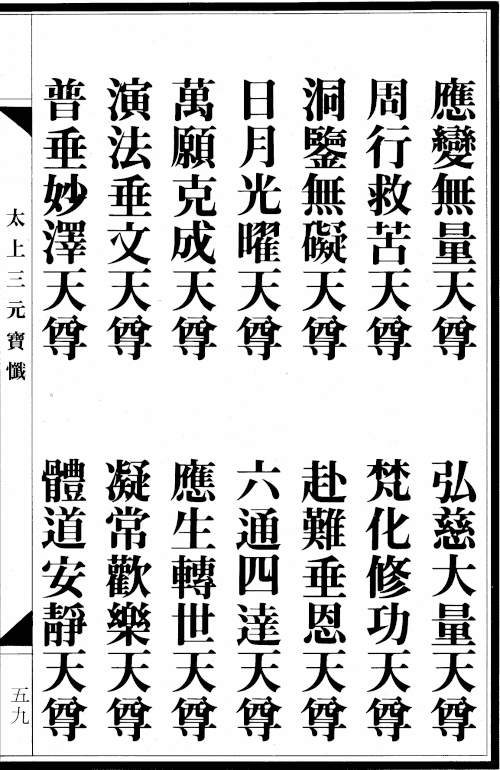 應變無量天尊　弘慈大量天尊
周行救苦天尊　梵化修功天尊
洞鑒無礙天尊　赴難垂恩天尊
日月光曜天尊　六通四達天尊
萬願克成天尊　應生轉世天尊
演法垂文天尊　凝常歡樂天尊
普垂妙澤天尊　體道安靜天尊
太上三元寶懺
五九